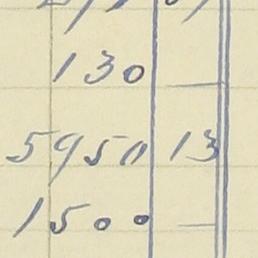 130 —
5950 13
1500 —